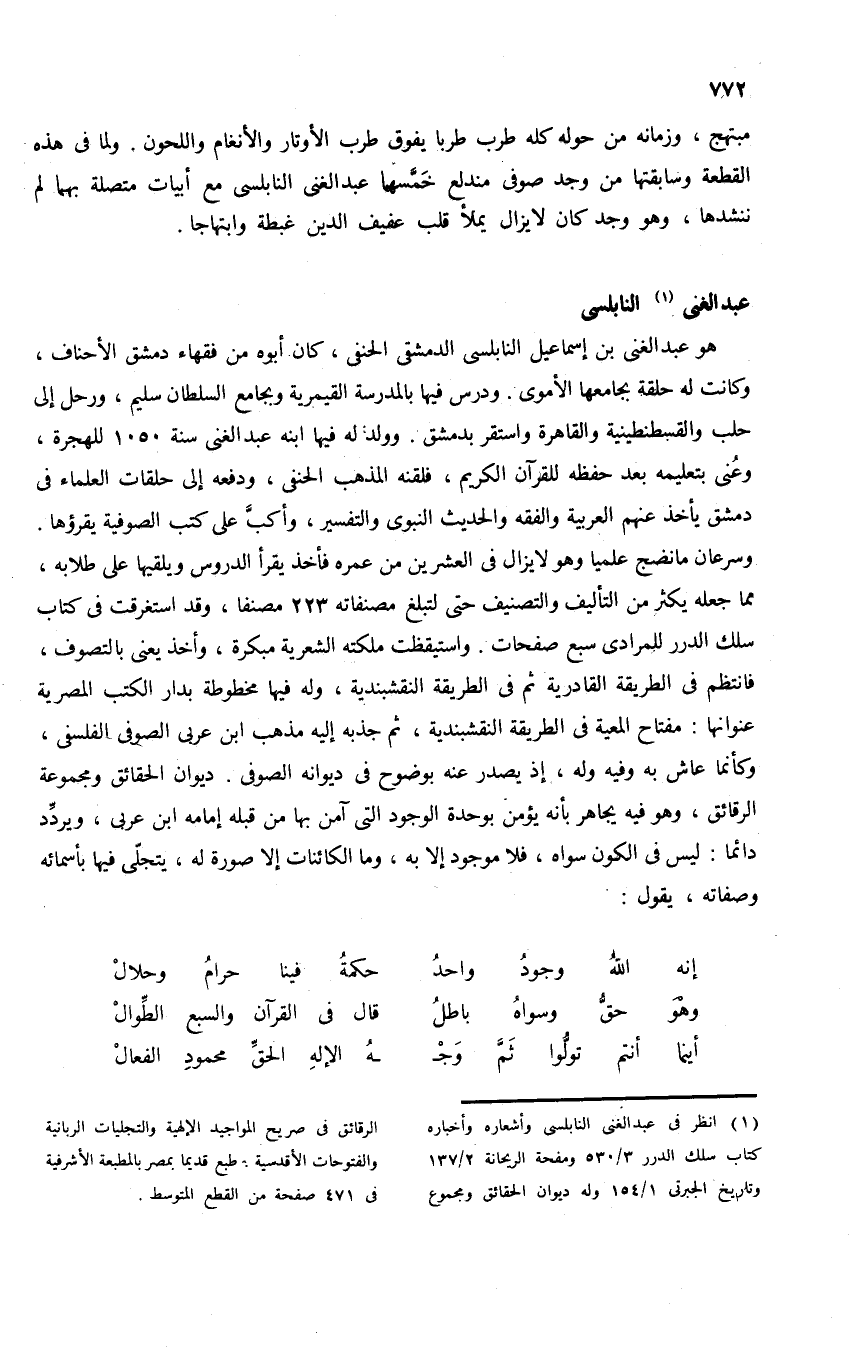 ٧٧٢
مبتهج ، وزمانه من حوله كله طرب طربا يفوق طرب الأوتار والأنغام واللحون . ولما فى هذه
القطعة وسابقتها من وجد صوفى مندلع خَمَّسها عبدالغنى النابلسى مع أبيات متصلة بهما لم
ننشدها ، وهو وجد كان لايزال يملأ قلب عفيف الدين غبطة وابتهاجا .
عبدالغنى (١) النابلسى
هو عبدالغنى بن إسماعيل النابلسى الدمشقى الحنفى ، كان أبوه من فقهاء دمشق الأحناف ،
وكانت له حلقة بجامعها الأموى . ودرس فيها بالمدرسة القيمرية وبجامع السلطان سليم ، ورحل إلى
حلب والقسطنطينية والقاهرة واستقر بدمشق . وولد له فيها ابنه عبدالغنى سنة ١٠٥٠ للهجرة ،
وعُنى بتعليمه بعد حفظه للقرآن الكريم ، فلقنه المذهب الحنفى ، ودفعه إلى حلقات العلماء فى
دمشق يأخذ عنهم العربية والفقه والحديث النبوى والتفسير ، وأكبَّ على كتب الصوفية يقرؤها .
وسرعان مانضج علميا وهو لايزال فى العشرين من عمره فأخذ يقرأ الدروس ويلقيها على طلابه ،
مما جعله يكثر من التأليف والتصنيف حتى لتبلغ مصنفاته ٢٢٣ مصنفا ، وقد استغرقت فى كتاب
سلك الدرر للمرادى سبع صفحات . واستيقظت ملكته الشعرية مبكرة ، وأخذ يعنى بالتصوف ،
فانتظم فى الطريقة القادرية ثم فى الطريقة النقشبندية ، وله فيها مخطوطة بدار الكتب المصرية
عنوانها : مفتاح المعية فى الطريقة النقشبندية ، ثم جذبه إليه مذهب ابن عربى الصوفى الفلسفى ،
وكأنما عاش به وفيه وله ، إذ يصدر عنه بوضوح فى ديوانه الصوفى . ديوان الحقائق ومجموعة
الرقائق ، وهو فيه يجاهر بأنه يؤمن بوحدة الوجود التى آمن بها من قبله إمامه ابن عربى ، ويردِّد
دائما : ليس فى الكون سواه ، فلا موجود إلا به ، وما الكائنات إلا صورة له ، يتجلّى فيها بأسمائه
وصفاته ، يقول :
إنه اللهُ وجودُ واحدُ حكمةُ فينا حرامُ وحلالْ
وهْوَ حقُّ وسواهُ باطلُ قال فى القرآن والسبع الطِّوالْ
أينما أنتم تولُّوا ثَمَّ وَجْـ ـهُ الإلهِ الحقِّ محمودِ الفعالْ
(١) انظر فى عبدالغنى النابلسى وأشعاره وأخباره
كتاب سلك الدرر ٥٣٠/٣ ومفحة الريحانة ١٣٧/٢
وتاريخ الجبرتى ١٥٤/١ وله ديوان الحقائق ومجموع
الرقائق فى صريح المواجيد الإلهية والتجليات الربانية
والفتوحات الأقدسية . طبع قديما بمصر بالمطبعة الأشرفية
فى ٤٧١ صفحة من القطع المتوسط .